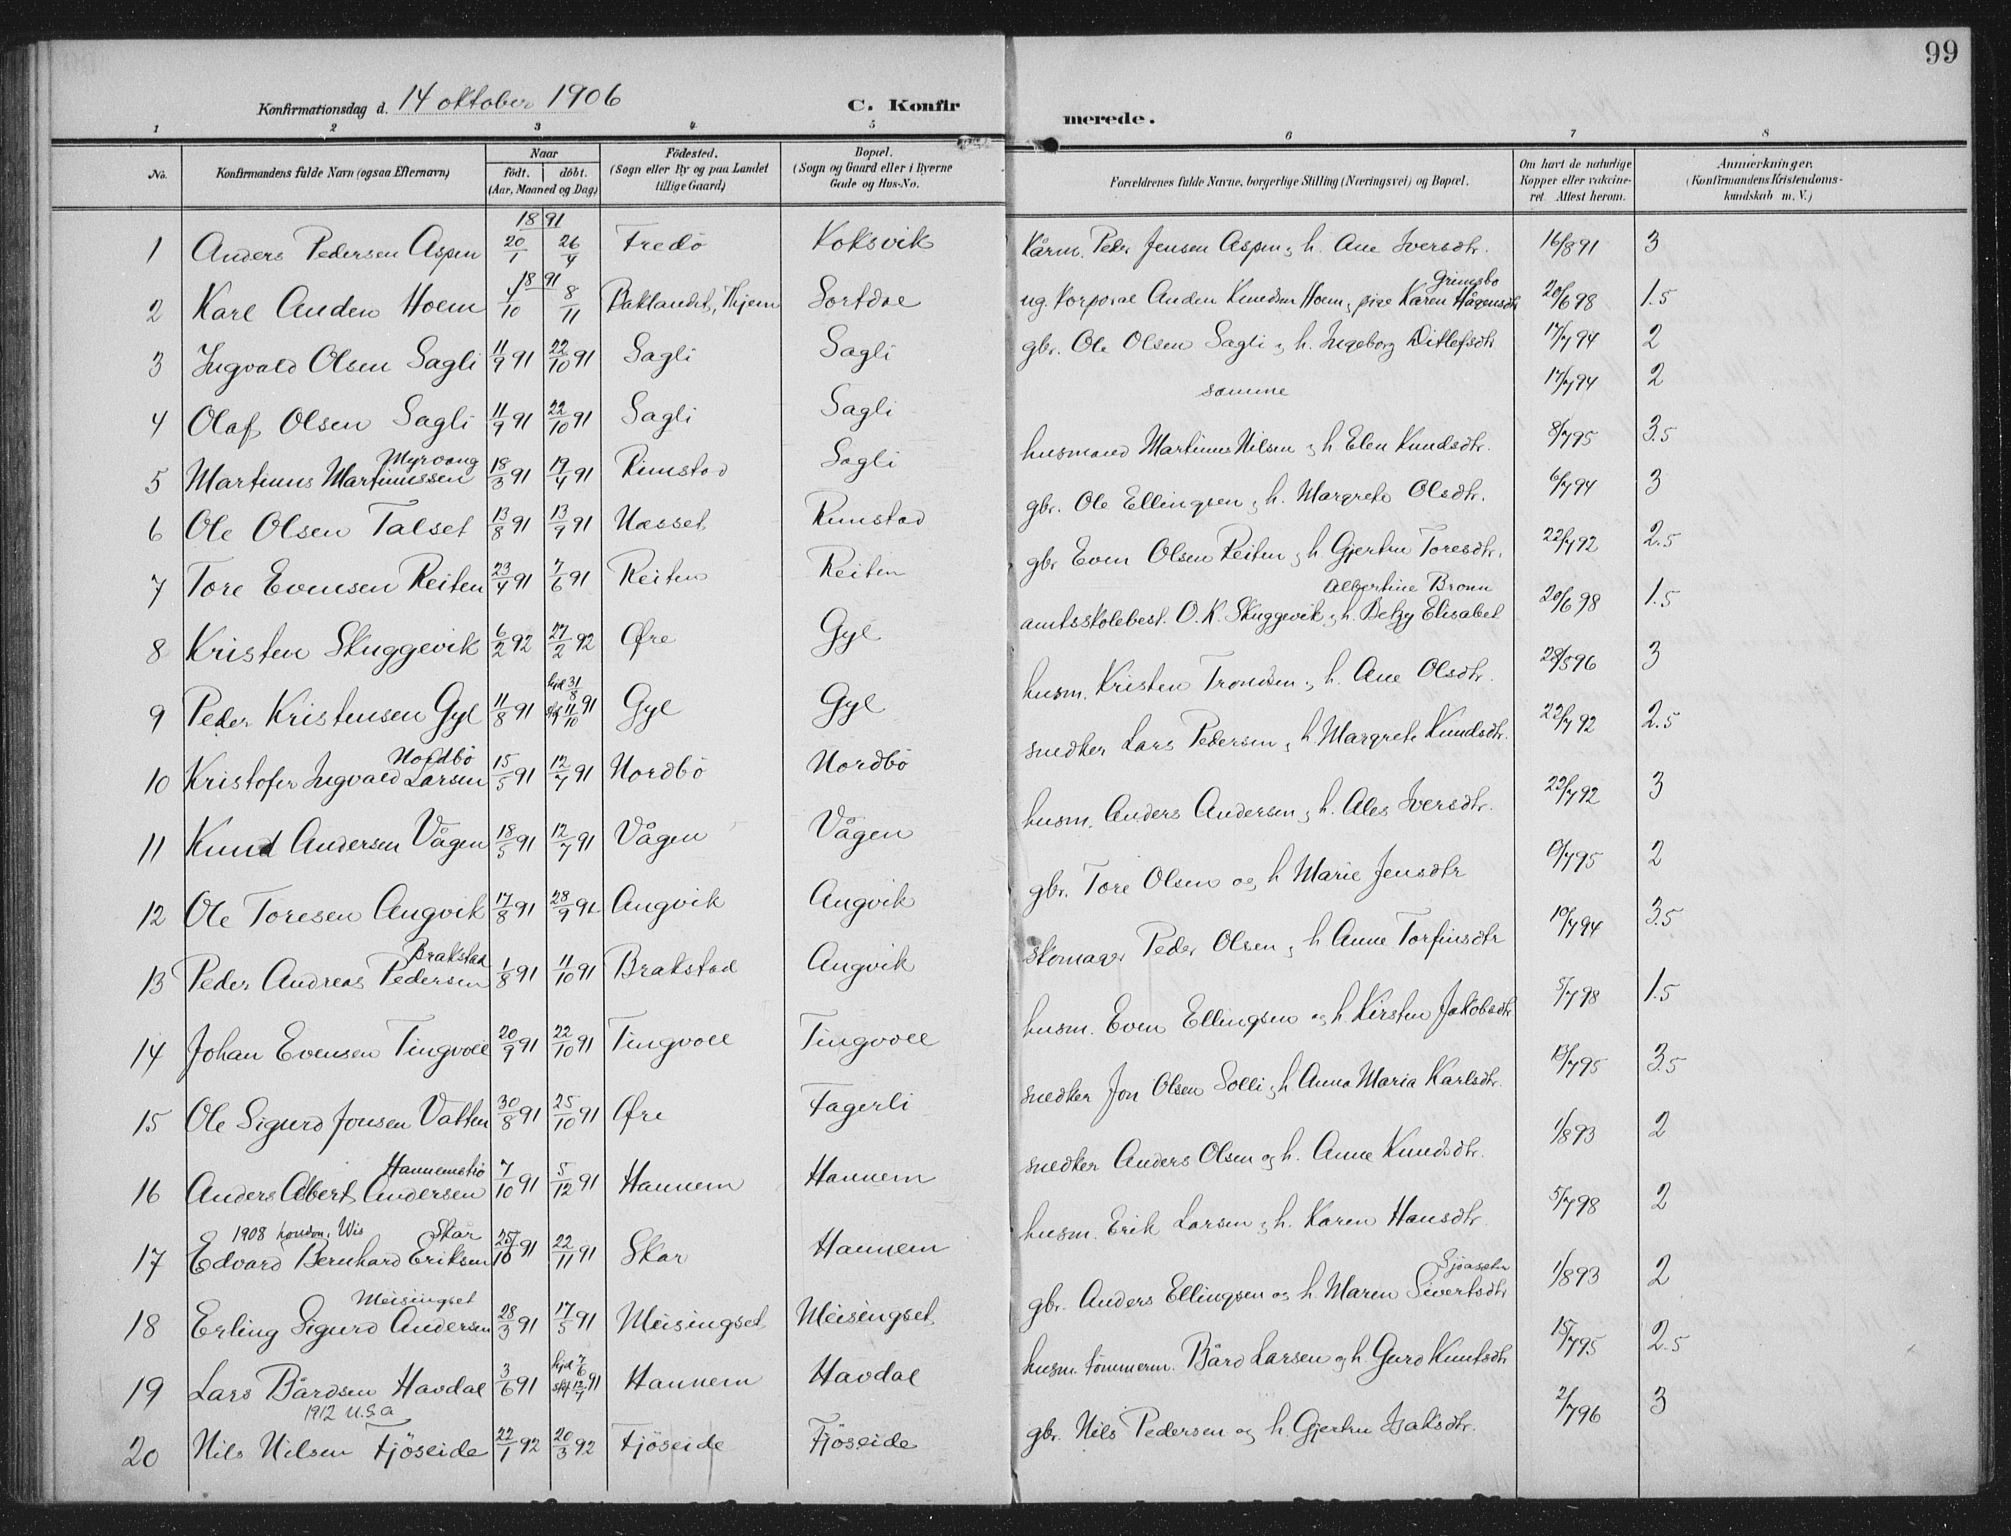 99
Konfirmationsdag d. 14 oktober 1906 C. Konfirmerede.
1 2 3 4 5 6 7 8
No. Konfirmandens fulde Navn (ogsaa Efternavn) Naar født. døbt. (Aar, Maaned og Dag) Fødested. (Sogn eller By og paa Landet tillige Gaard) Bopæl. (Sogn og Gaard eller i Byerne Gade og Hus-No. Forældrenes fulde Navne, borgerlige Stilling (Næringsvei) og Bopæl. Om havt de naturlige Kopper eller vakcineret. Attest herom. Anmærkninger. (Konfirmandens Kristendomskundskab m. V.)
1891
1 Anders Pedersen Aspen 20/1 26/4 Fredö Koksvik Kårm. Peder Jensen Aspen og h. Ane Iversdtr. 16/8 91 3
1891
2 Karl Anden Hoem 4/10 8/11 Baklandet, Thjem Sortdal ug. korporal Anden Knudsen Hoem, pige Karen Hågensdtr Grimsbo 20/6 98 1.5
3 Ingvald Olsen Sagli 11/9 91 22/10 91 Sagli Sagli gbr. Ole Olsen Sagli og h. Ingeborg Ditlefsdtr 17/7 94 2
4 Olaf Olsen Sagli 11/9 91 22/10 91 Sagli Sagli samme 17/7 94 2
5 Martinus Martinussen Myrvang 18/3 91 19/4 91 Rimstad Sagli husmand Martinus Nilsen og h Elen Knudsdtr. 8/7 95 3.5
6 Ole Olsen Talset 13/8 91 13/9 91 Næsset Rimstad gbr. Ole Ellingsen og h. Margrete Olsdtr. 6/7 94 3
7 Tore Evensen Reiten 23/4 91 7/6 91 Reiten Reiten gbr Even Olsen Reiten og h Gjertru Toresdtr. 22/7 92 2.5
8 Kristen Skuggevik 6/2 92 27/2 92 Øre Gyl amtsskolebest. O. K. Skuggevik og h. Betzy Elisabet Albertine Brown 20/6 98 1.5
9 Peder Kristensen Gyl 11/8 91 hjd 31/8 stf 11/10 91 Gyl Gyl husm. Kristen Trondsen og h. Ane Olsdtr. 28/5 96 3
10 Kristofer Ingvald Larsen Nordbö 15/5 91 12/7 91 Nordbö Nordbö snedker Lars Pedersen og h. Margrete Knudsdtr. 22/7 92 2.5
11 Knud Andersen Vågen 18/5 91 12/7 91 Vågen Vågen husm. Anders Andersen og h. Ales Iversdtr. 22/7 92 3
12 Ole Toresen Angvik 17/8 91 28/9 91 Angvik Angvik gbr. Tore Olsen og h Marie Jensdtr 9/7 95 2
13 Peder Andreas Pedersen Brakstad 1/8 91 11/10 91 Brakstad Angvik skomager Peder Olsen og h Anne Torfinsdtr 10/7 94 3.5
14 Johan Evensen Tingvoll 20/9 91 22/10 91 Tingvoll Tingvoll husm. Even Ellingsen og h. Kirsten Jakobsdtr 5/7 98 1.5
15 Ole Sigurd Jonsen Vatten 30/8 91 25/10 91 Øre Fagerli snedker Jon Olsen Solli og h Anna Maria Karlsdtr. 13/7 95 3.5
16 Anders Albert Andersen Hannemstrø 7/10 91 5/12 91 Hannem Hannem snedker Anders Olsen og h. Anne Knudsdtr. 1/8 93 2
1908 Wis
17 Edvard Bernhard Eriksen Skar 25/10 91 22/11 91 Skar Hannem husm. Erik Larsen og h. Karen Hansdtr 5/7 98 2
18 Erling Sigurd Andersen Meisingset 28/3 91 17/5 91 Meisingset Meisingset gbr. Anders Ellingsen og h. Maren Sivertsdtr Sjöasæter 1/8 93 2
19 Lars Bårdsen Havdal 3/6 91 hjd 7/6 stf 12/7 91 Hannem Havdal husm. tömmerm. Bård Larsen og h Guro Knutsdtr 15/7 95 2.5
1912 U.S.A
20 Nils Nilsen Fjöseide 22/1 92 20/3 92 Fjöseide Fjöseide gbr. Nils Pedersen og h. Gjertru Isaksdtr. 2/7 96 3